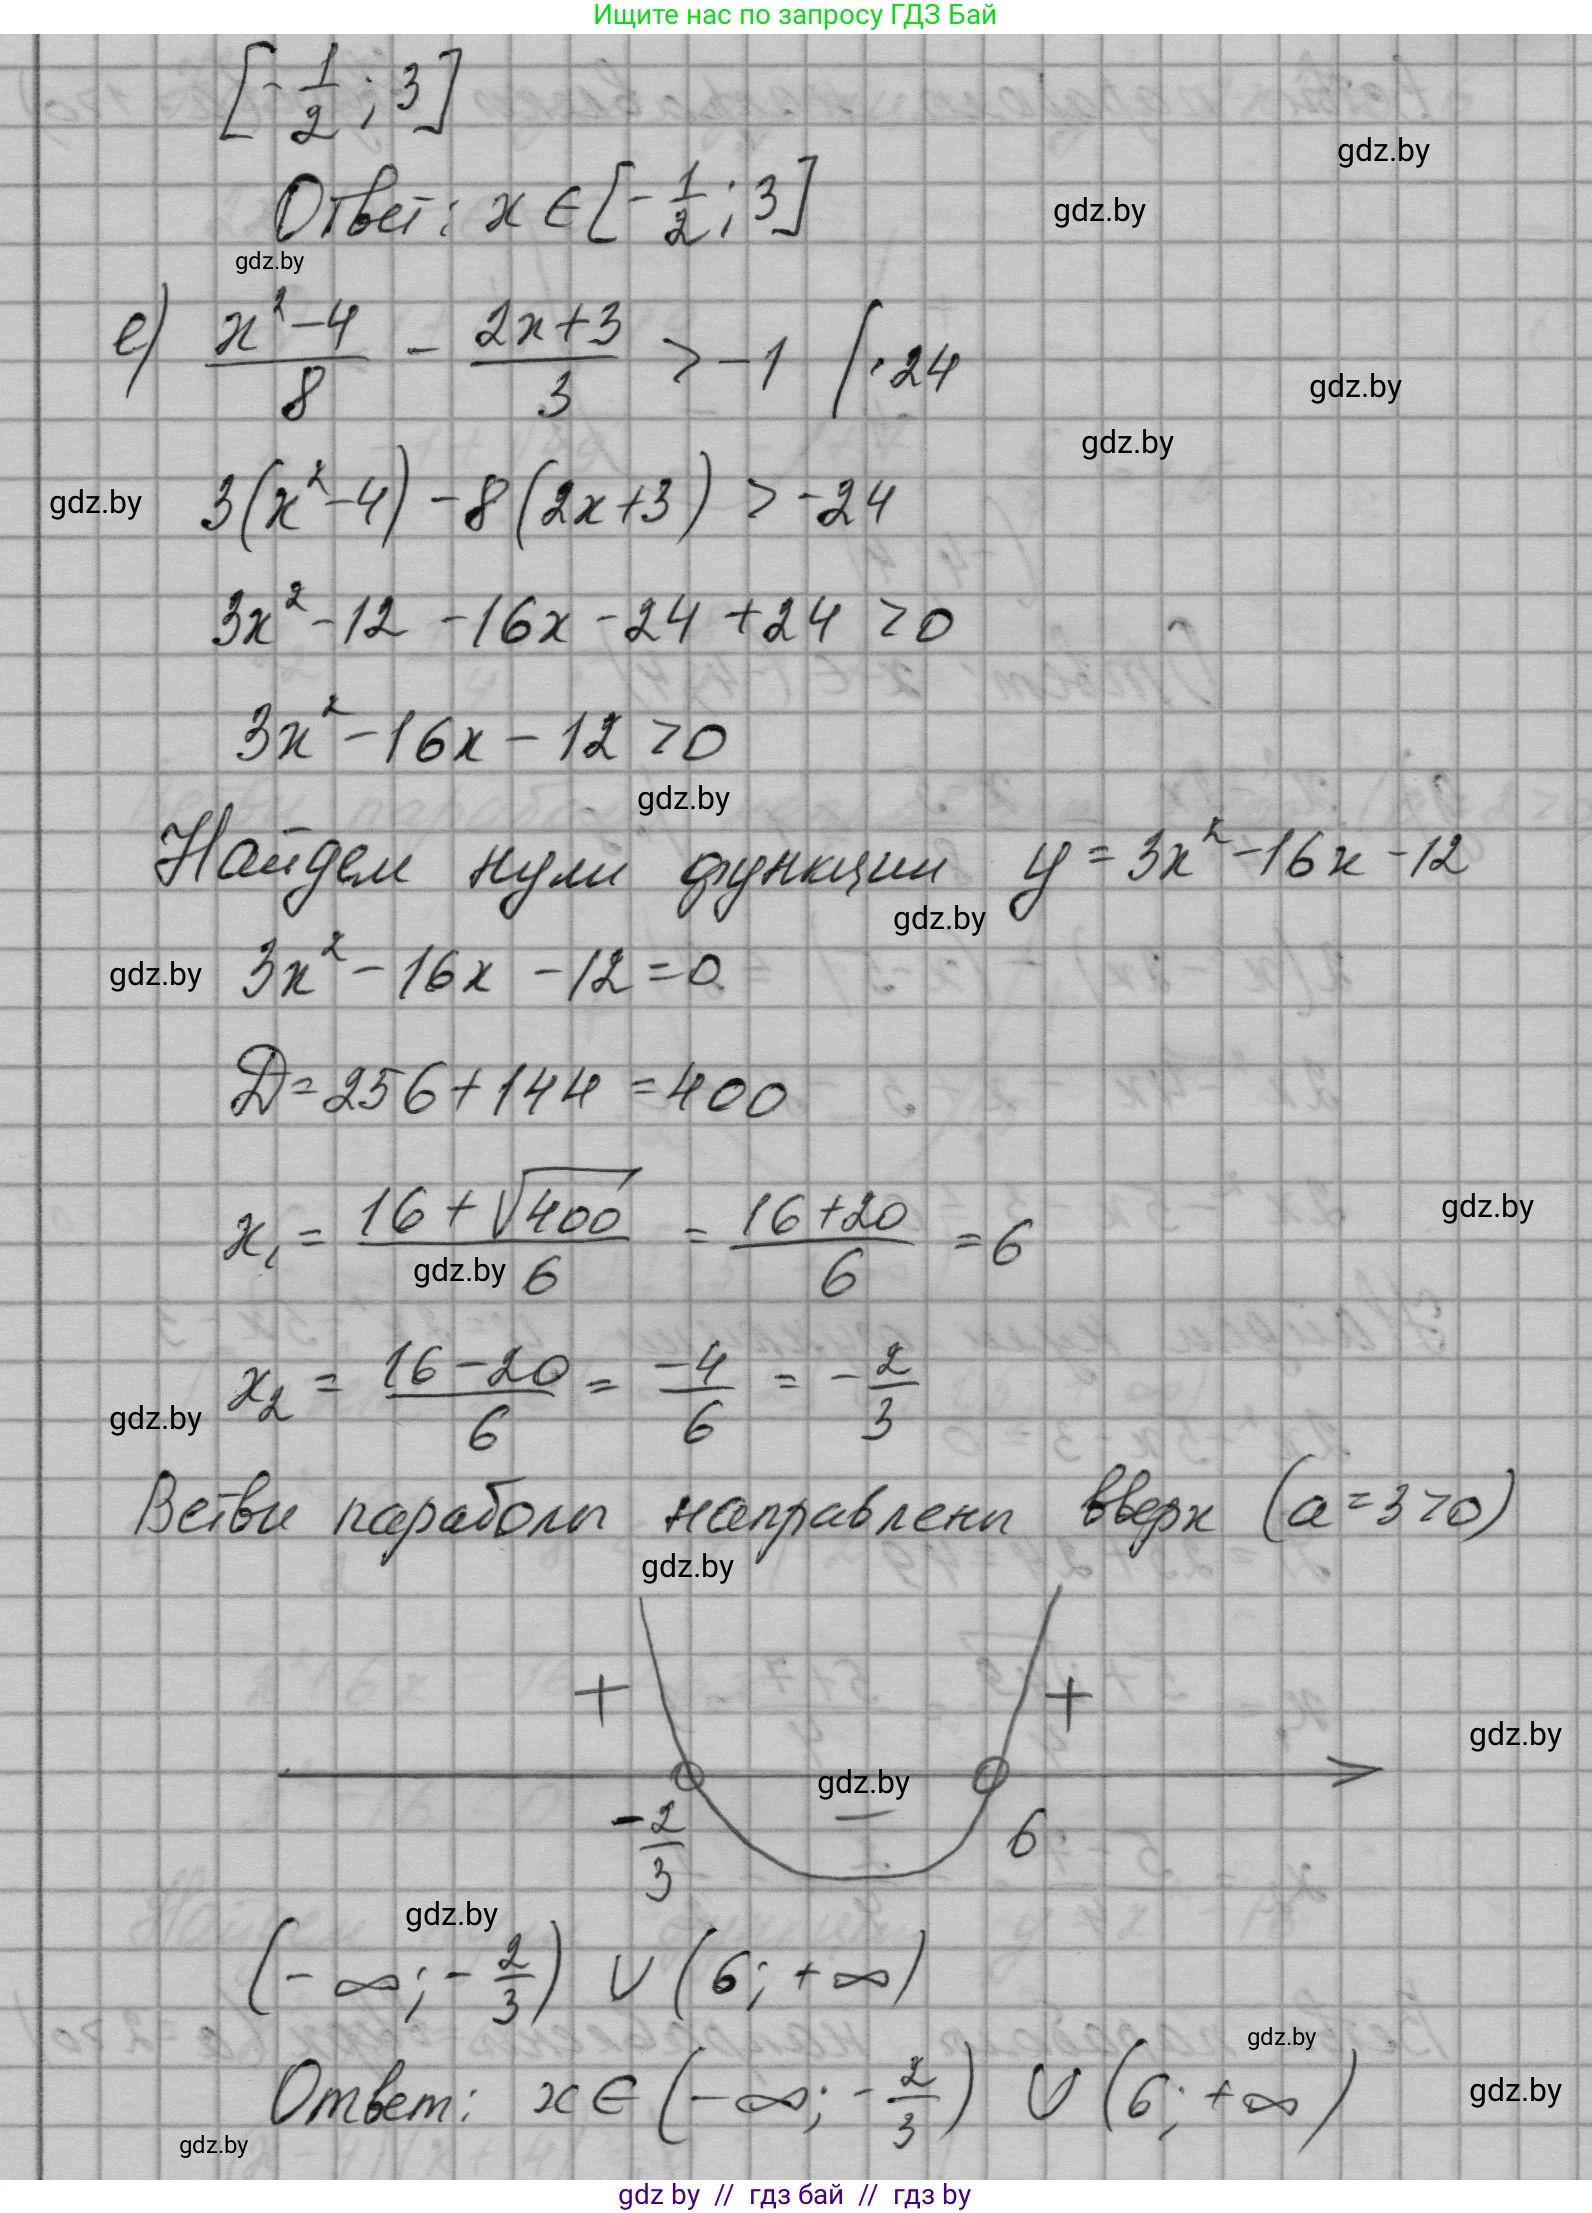 Ищите нас по запросу ГДЗ Бай
[-1/2; 3]
gdz.by
Ответ: x ∈ [-1/2; 3]
gdz.by
gdz.by
е) (x²-4)/8 - (2x+3)/3 > -1 | ·24
gdz.by
gdz.by
gdz.by
3(x²-4) - 8(2x+3) > -24
3x² - 12 - 16x - 24 + 24 > 0
3x² - 16x - 12 > 0
gdz.by
Найдем нули функции y = 3x² - 16x - 12
gdz.by
gdz.by
3x² - 16x - 12 = 0
Д = 256 + 144 = 400
x₁ = (16 + √400)/6 = (16+20)/6 = 6
gdz.by
gdz.by
x₂ = (16-20)/6 = -4/6 = -2/3
gdz.by
Ветви параболы направлены вверх (a = 3 > 0)
gdz.by
+ +
gdz.by
gdz.by
−
-2/3 6
gdz.by
(-∞; -2/3) ∪ (6; +∞)
gdz.by
Ответ: x ∈ (-∞; -2/3) ∪ (6; +∞)
gdz.by
gdz.by
gdz by // гдз бай // гдз by